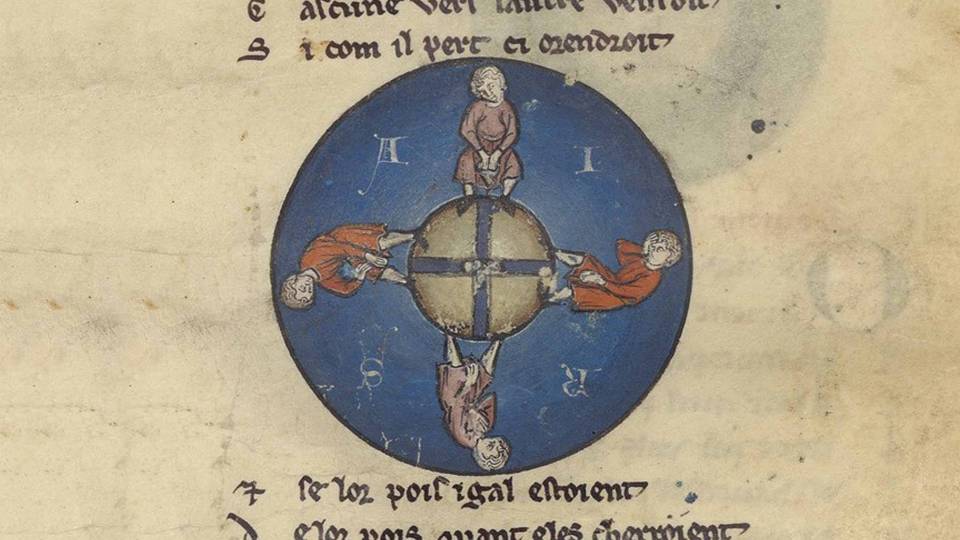 C ascune vers lautre vendroit
S i com il pert ci orendroit
A I
S R
⁊ se lor pois igal estoient
E lor pois quant eles cherroient